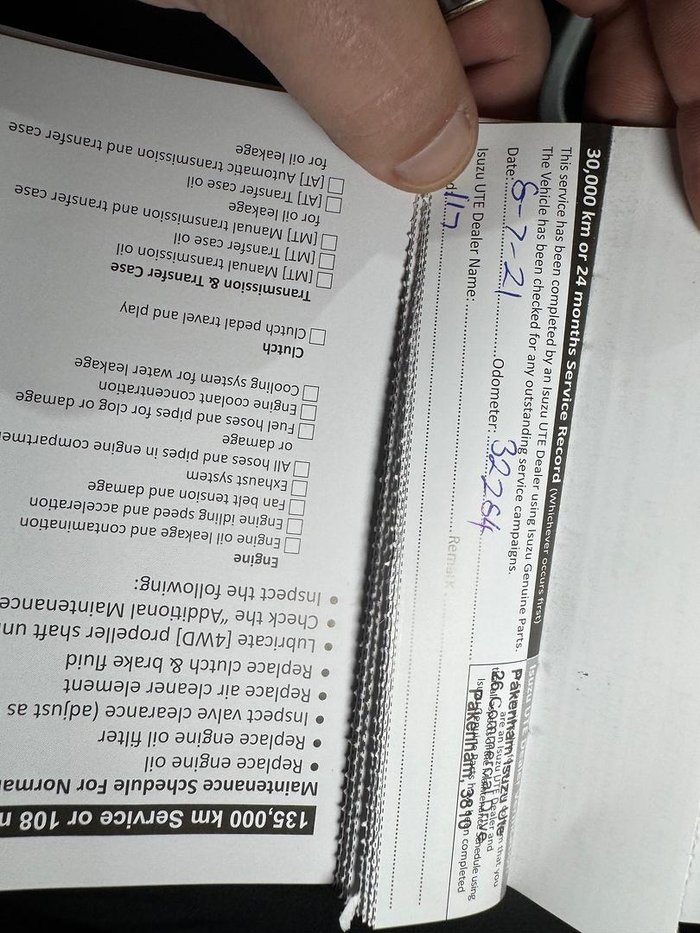 30,000 km or 24 months Service Record (Whichever occurs first)
This service has been completed by an Isuzu UTE Dealer using Isuzu Genuine Parts.
The Vehicle has been checked for any outstanding service campaigns.
Date: 8-7-21 Odometer: 32284
Isuzu UTE Dealer Name:
Remark
Pakenham Isuzu Ute
26 Commercial Drive
Pakenham, 3810
135,000 km Service or 108
Maintenance Schedule For
• Replace engine oil
• Replace engine oil filter
• Inspect valve clearance (adjust as
• Replace air cleaner element
• Replace clutch & brake fluid
• Lubricate [4WD] propeller shaft
• Check the "Additional Maintenance
• Inspect the following:
Engine
Engine oil leakage and contamination
Engine idling speed and acceleration
Fan belt tension and damage
Exhaust system
All hoses and pipes in engine
or damage
Fuel hoses and pipes for clog or damage
Engine coolant concentration
Cooling system for water leakage
Clutch
Clutch pedal travel and play
Transmission & Transfer Case
[MT] Manual transmission oil
[MT] Transfer case oil
[MT] Manual transmission and transfer case
for oil leakage
[AT] Transfer case oil
[AT] Automatic transmission and transfer case
for oil leakage